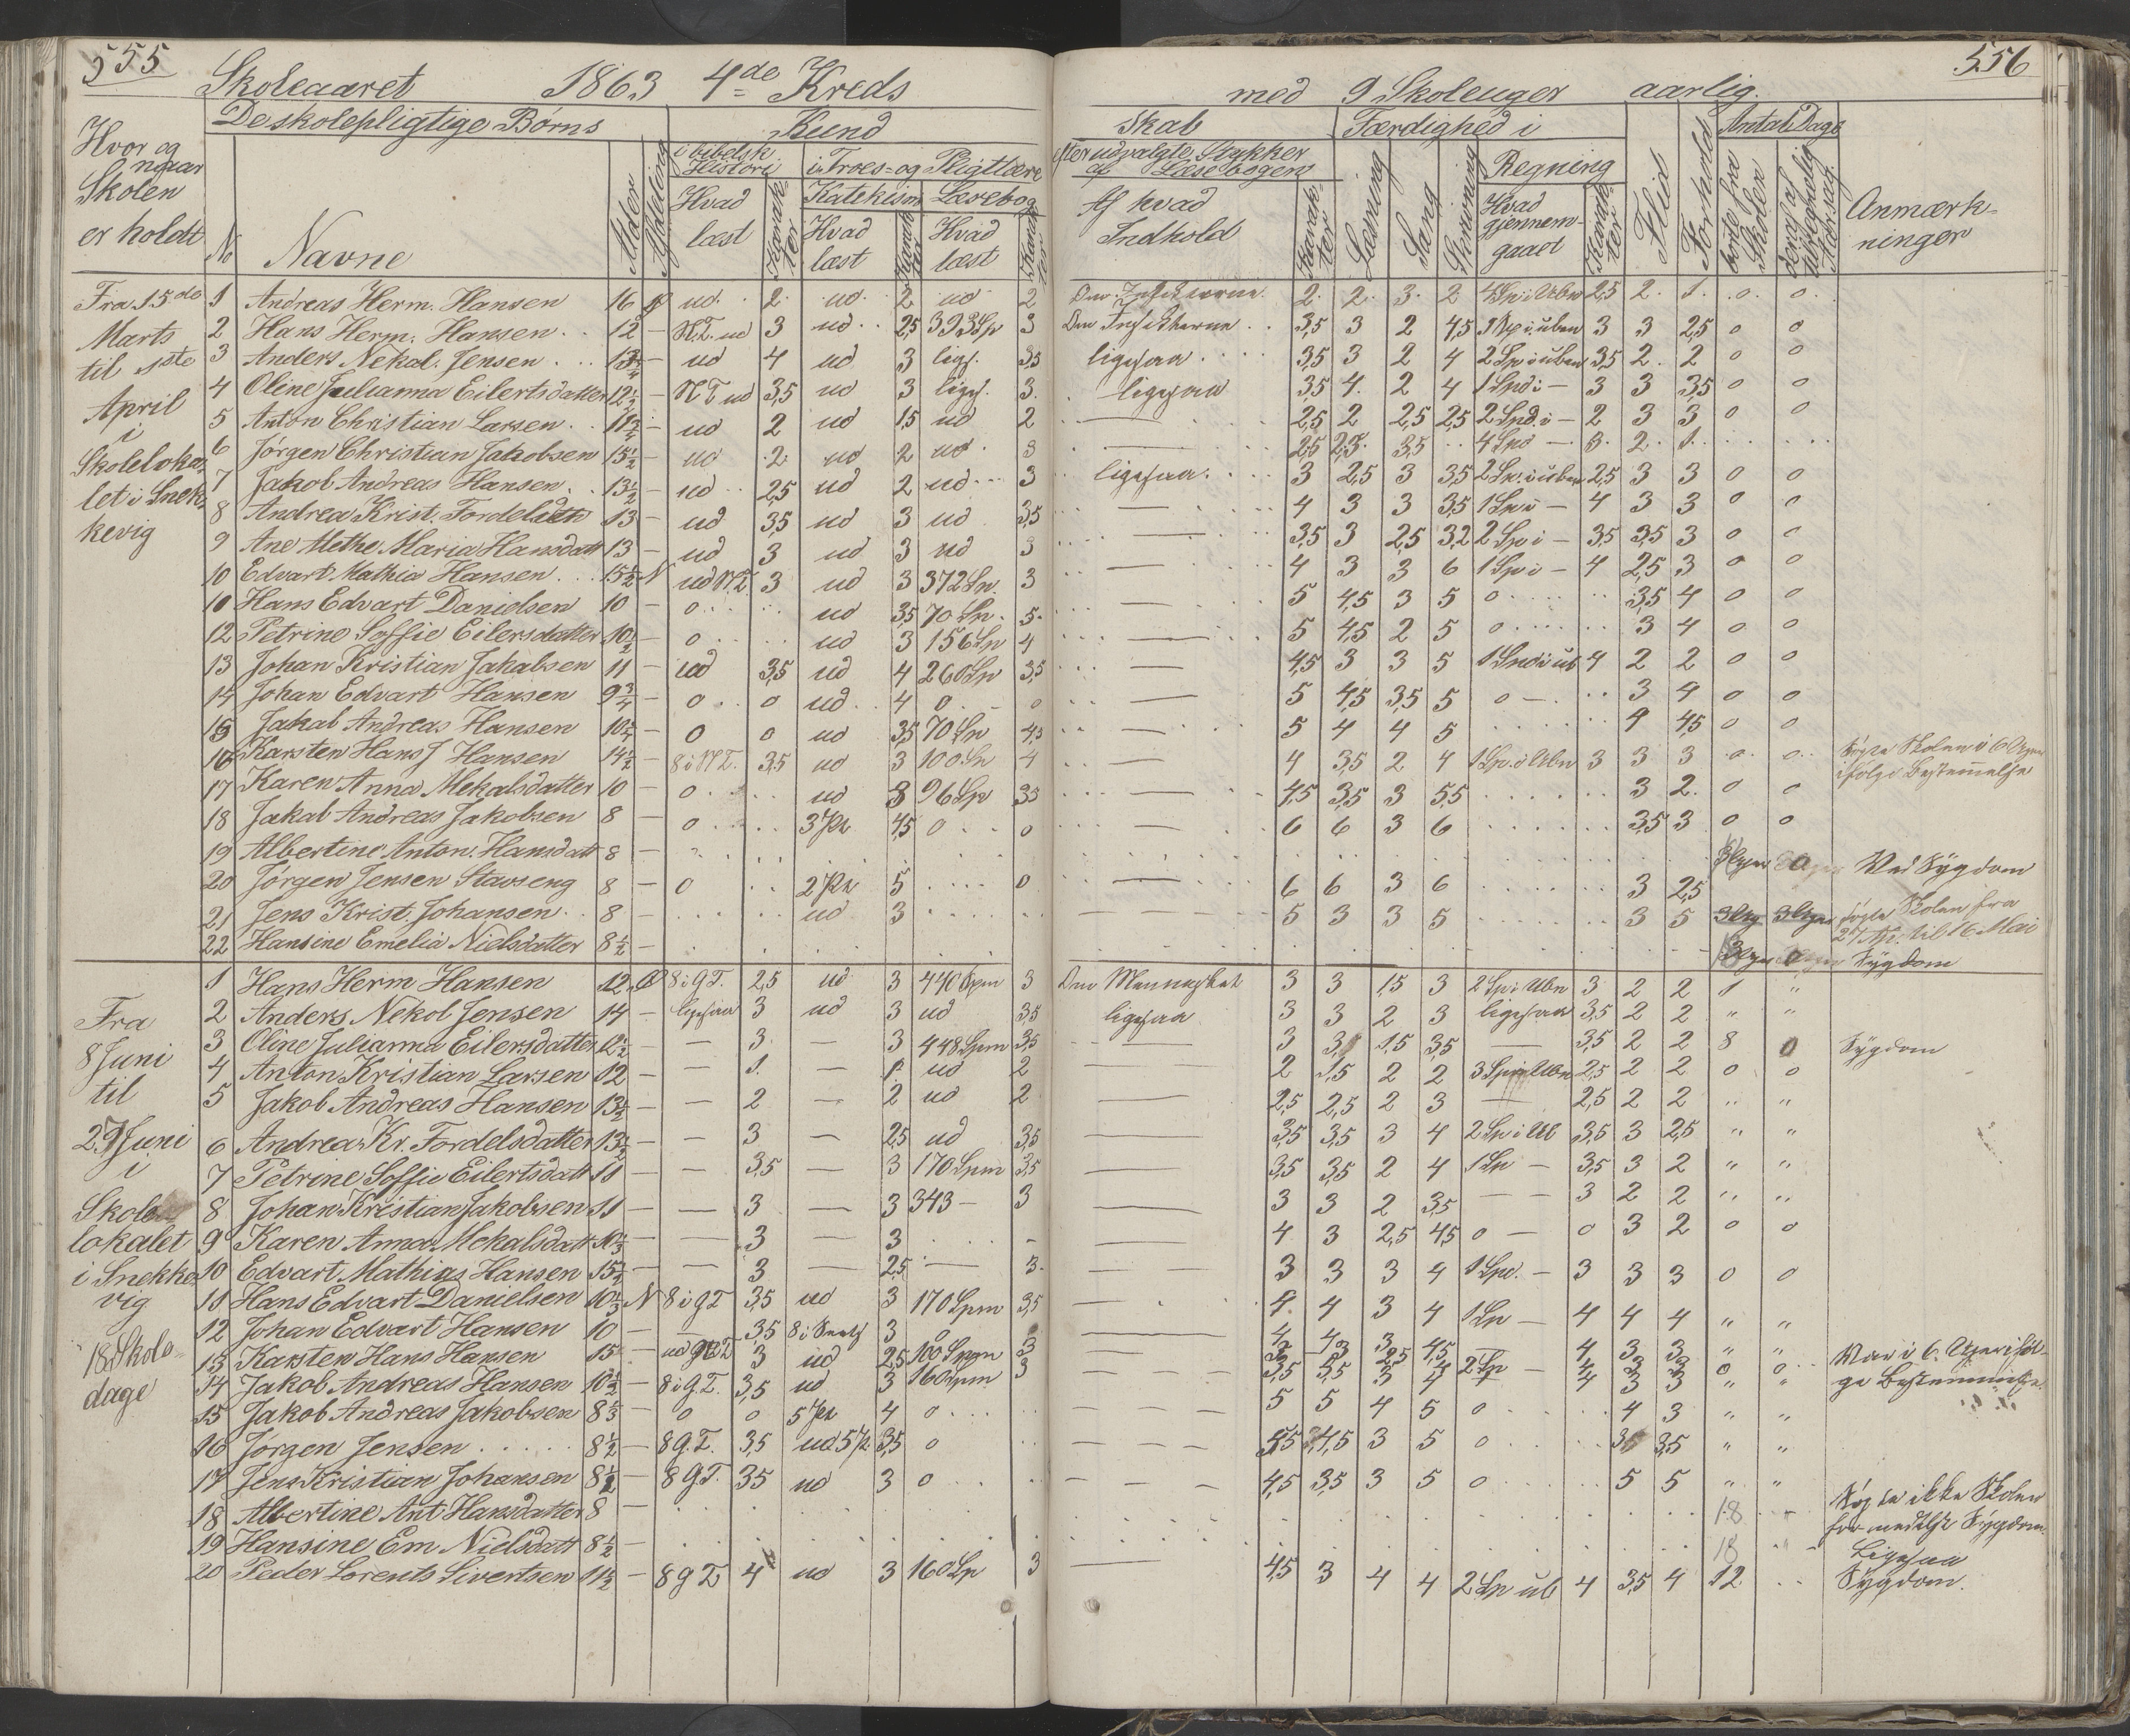 555
Skoleaaret 1863 4de Kreds
De skolepligtige Børns Kund
Hvor og naar Skolen er holdt
No
Navne
Alder
i bibelsk Historie
i Troes- og Pligtlære
Hvad læst
Karakter
Katekism
Hvad læst
Karakter
Læsebog
Hvad læst
Karakter
Fra 15de Marts til 1ste April i Skolelokalet i Snekkevig
1 Andreas Herm. Hansen 16 ud 2 ud 2 ud 2
2 Hans Herm. Hansen 12 — N.T. ud 3 ud 2,5 3
3 Anders Nekal. Jensen — ud 4 ud 3 ligs. 3,5
4 Oline Julianna Eilertsdatter 12½ — N T ud 3,5 ud 3 ligs. 3
5 Anton Christian Larsen 11¾ — ud 2 ud 1,5 ud 2
6 Jørgen Christian Jakobsen 15½ — ud 2 ud 2 ud 3
7 Jakob Andreas Hansen 13½ — ud 2,5 ud 2 ud 3
8 Andrea Krist. Fordelsdtr 13 — ud 3,5 ud 3 ud 3,5
9 Ane Methe Maria Hansdatt 13 — ud 3 ud 3 ud 3
10 Edvart Mathia Hansen 15½ N ud N.T. 3 ud 3 372 Sp. 3
10 Hans Edvart Danielsen 10 — 0 ud 3,5 70 Sp. 5
12 Petrine Soffie Eilersdatter 10½ — 0 ud 3 156 Sp 4
13 Johan Kristian Jakabsen 11 — ud 3,5 ud 4 260 Sp 3,5
14 Johan Edvart Hansen 9¾ — 0 0 ud 4 0 0
15 Jakab Andreas Hansen — 0 0 ud 3,5 70 Sp 4,5
16 Karsten Hans J Hansen 14½ — 8 i N T. 3,5 ud 3 100 Sp 4
17 Karen Anna Mekalsdatter 10 — 0 ud 3 96 Sp 3,5
18 Jakab Andreas Jakobsen 8 — 0 3 Pt 4,5 0 0
19 Albertine Anton. Hansdatt 8 —
20 Jørgen Jensen Stavseng 8 — 0 2 Pt 5 0
21 Jens Krist. Johansen 8 — ud 3
22 Hansine Emelia Nielsdatter 8½ —
Fra 8 Juni til 29 Juni i Skolelokalet i Snekkevig 18 Skoledage
1 Hans Herm Hansen 12 8 i G.T. 2,5 ud 3 440 Spm 3
2 Anders Nekol Jensen 14 — ligesaa 3 ud 3 ud 3,5
3 Oline Julianna Eilersdatter 12½ — — 3 — 3 448 Spm 3,5
4 Anton Kristian Larsen 12 — — 1 — 1 ud 2
5 Jakob Andreas Hansen 13½ — — 2 — 2 ud 2
6 Andrea Kr. Fordelsdatter 13½ — — 3 — 2,5 ud 3,5
7 Petrine Soffie Eilertsdatt 11 — — 3,5 — 3 170 Spm 3,5
8 Johan Kristian Jakobsen 11 — — 3 — 3 343 — 3
9 Karen Anna Mekalsdatt 10⅓ — — 3 — 3
10 Edvart Mathias Hansen 15½ — — 3 — 2,5 — 3
11 Hans Edvart Danielsen 10⅓ N 8 i G T 3,5 ud 3 170 Spm 3,5
12 Johan Edvart Hansen 10 — — 3,5 3 0
13 Karsten Hans Hansen 15 3 ud 2,5 100 Spm 3
14 Jakob Andreas Hansen 10½ — 8 i G.T. 3,5 ud 3 160 Spm 3
15 Jakob Andreas Jakobsen 8⅓ — 0 0 5 Pt 4 0
16 Jørgen Jensen 8½ — 8 G.T. 3,5 ud 5 Pt 3,5 0
17 Jens Kristian Johansen 8½ — 8 G T. 3,5 ud 3 0
18 Albertine Ant Hansdatter 8 —
19 Hansine Em Nielsdatt 8½ —
20 Peder Lorents Sivertsen 11½ — 8 G T 4 ud 3 160 Sp 3
556
med 9 Skoleuger aarlig.
Skab
Færdighed i
Antal Dage
efter udvalgte Stykker af Læsebogen
Af hvad Indhold
Karakter
Læsning
Sang
Skrivning
Regning
Hvad gjennemgaaet
Karakter
Flid
Forhold
borte fra Skolen
deraf af uregholdig Aarsag
Anmærkninger
2 2 3 2 4 Sp i Ubn 2,5 2 1 0 0
3,5 3 2 4,5 3 3 2,5 0 0
ligesaa 3,5 3 2 4 2 Sp i uben 3,5 2 2 0 0
ligesaa 3,5 4 2 4 1 Spd i — 3 3 3,5 0 0
— 2,5 2 2,5 2,5 2 Spd. i — 2 3 3 0 0
— 2,5 2,3 3,5 4 Spd — 3 2 1
ligesaa 3 2,5 3 3,5 2 Sp. i uben 2,5 3 3 0 0
— 4 3 3 3,5 1 Sp i — 4 3 3 0 0
— 3,5 3 2,5 3,2 2 Sp i — 3,5 3,5 3 0 0
— 4 3 3 6 1 Sp i — 4 2,5 3 0 0
— 5 4,5 3 5 0 3,5 4 0 0
— 5 4,5 2 5 0 3 4 0 0
— 4,5 3 3 5 1 Spd i ub 4 2 2 0 0
— 5 4,5 3,5 5 0 — 3 4 0 0
— 5 4 4 5 4 4,5 0 0
— 4 3,5 2 4 1 Sp. i Ubn 3 3 3 0 0 Søgte Skolen i 6 Uger ifølge Bestemmelse
— 4,5 3,5 3 5,5 3 2 0 0
— 6 6 3 6 3,5 3 0 0
Ved Sygdom
— 6 6 3 6 3 2,5
— 5 3 3 5 3 5 søgte Skolen fra 27 Ap. til 16 Mai
Sygdom
Om Mennesket 3 3 1,5 3 2 Sp i Ubn 3 2 2 1 "
ligesaa 3 3 2 3 ligesaa 3,5 2 2 " "
— 3 3 1,5 3,5 — 3,5 2 2 8 0 Sygdom
— 2 1,5 2 2 3 Sp i Ubn 2,5 2 2 0 0
— 2,5 2,5 2 3 — 2,5 2 2 " "
— 3,5 3,5 3 4 2 Sp i Ub 3,5 3 2,5 " "
— 3,5 3,5 2 4 1 Sp — 3,5 3 2 " "
— 3 3 2 3,5 — — 3 2 2 " "
— 4 3 2,5 4,5 0 — 0 3 2 0 0
— 3 3 3 4 1 Spd. — 3 3 3 0 0
— 4 4 3 4 1 Sp — 4 4 4 " "
Var i 6 Uger ifølge Bestemmelse
— — — 5 5 4 5 0 4 3 " "
— — — 4,5 3 5 0 3,5 " "
— — — 4,5 3,5 3 5 0 5 5 " "
18 Søgte ikke Skolen formedelst Sygdom
18 Ligesaa
— 4,5 3 4 4 2 Sp ub 4 3,5 4 12 Sygdom.